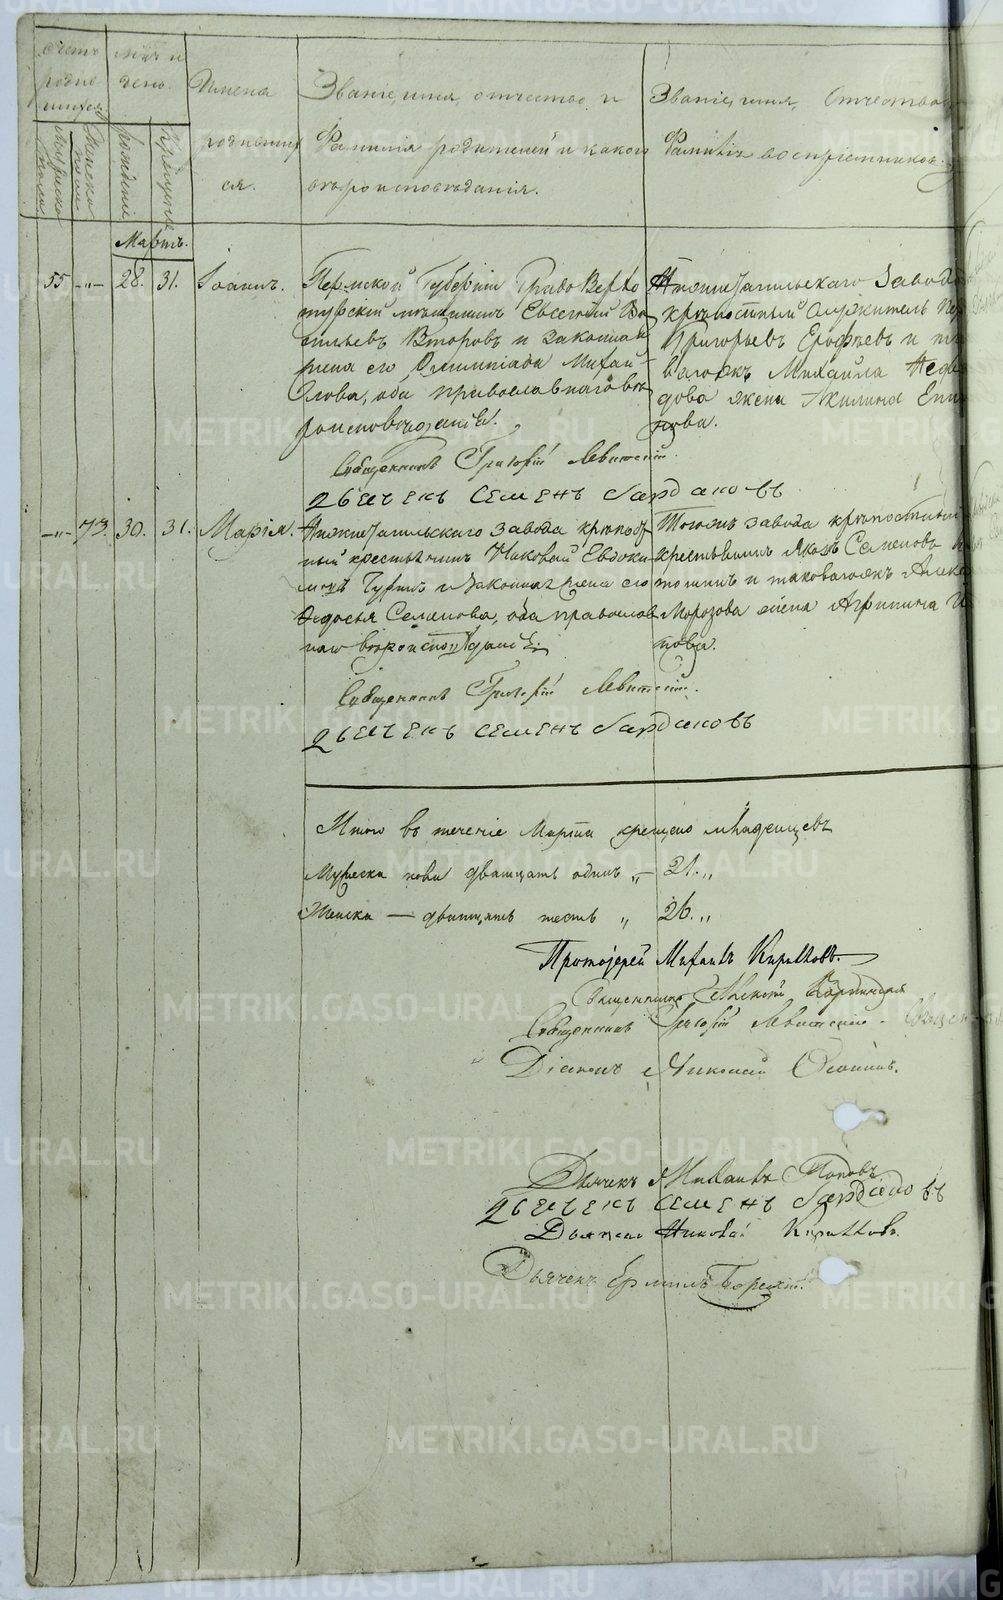 Счетъ родившихся
Мужеска пола
Женска пола
Мѣс. и день.
рожденіе
крещеніе
Имена родившихся.
Званіе, имя, отчество, и
Фамилія родителей и какого
вѣроисповѣданія.
Званіе, имя, отчество и
Фамилія воспріемниковъ.
Мартъ.
55 -„- 28. 31. Іоаннъ.
Пермской Губерніи Градо Верхо
турскій мѣщанинъ Евгеній Ва
сильевъ Второвъ и законная
жена его Олимпіада Михай-
лова, оба православнаго вѣ
роисповѣданія.
Нижнетагильскаго завода
крѣпостный служитель
Григорьевъ Ерофѣевъ и
Михайла
дова жена Акилина
нова.
Священникъ Григорій Левитскій.
Дьячекъ Семенъ Сардаковъ
-„- 73. 30. 31. Марія.
Нижнетагильскаго завода крѣпост
ный крестьянинъ Николай Евдоки
мовъ и законная жена его
Ѳедосья Семенова, оба православ
наго вѣроисповѣданія.
Тогожъ завода крѣпостный
крестьянинъ Яковъ Семеновъ
и таковагожъ
Морозова жена Агрипина
нова.
Священникъ Григорій Левитскій.
Дьячекъ Семенъ Сардаковъ
Итого въ теченіе Марта крещено младенцевъ
Мужеска пола двадцать одинъ „ — 21. „
Женска — двадцать шесть „ 26. „
Протоіерей Михаилъ Кирилловъ.
Священникъ Алексій
Священникъ Григорій Левитскій.
Діаконъ Николай Осипинъ.
Дьячекъ Михаилъ Поповъ
Дьячекъ Семенъ Сардаковъ
Дьячекъ Николай Кирилловъ.
Дьячекъ Ермилъ
METRIKI.GASO-URAL.RU